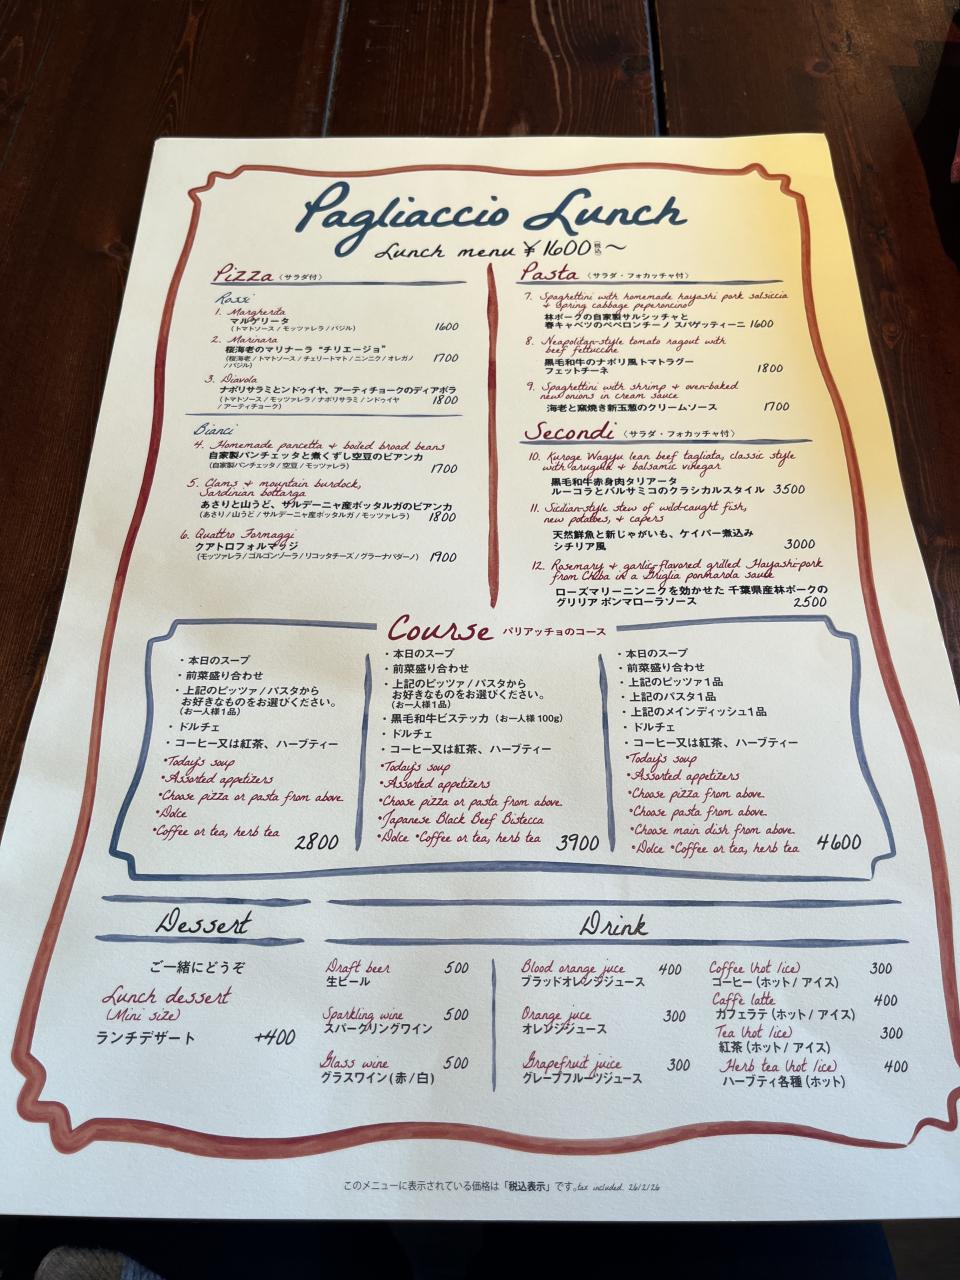 Pagliaccio Lunch
Lunch menu ¥1600税込〜
Pizza（サラダ付）
Rossi
1. Margherita
マルゲリータ
（トマトソース / モッツァレラ / バジル）
1600
2. Marinara
桜海老のマリナーラ “チリエージョ”
（桜海老 / トマトソース / チェリートマト / ニンニク / オレガノ
/ バジル）
1700
3. Diavola
ナポリサラミとンドゥイヤ、アーティチョークのディアボラ
（トマトソース / モッツァレラ / ナポリサラミ / ンドゥイヤ
/ アーティチョーク）
1800
Bianci
4. Homemade pancetta & boiled broad beans
自家製パンチェッタと煮くずし空豆のビアンカ
（自家製パンチェッタ / 空豆 / モッツァレラ）
1700
5. Clams & mountain burdock,
Sardinian bottarga
あさりと山うど、サルデーニャ産ボッタルガのビアンカ
（あさり / 山うど / サルデーニャ産ボッタルガ / モッツァレラ）
1800
6. Quattro Formaggi
クアトロフォルマッジ
（モッツァレラ / ゴルゴンゾーラ / リコッタチーズ / グラーナパダーノ）
1900
Pasta（サラダ・フォカッチャ付）
7. Spaghettini with homemade hayashi pork salsiccia
& Spring cabbage peperoncino
林ポークの自家製サルシッチャと
春キャベツのペペロンチーノ スパゲッティーニ 1600
8. Neapolitan-style tomato ragout with
beef fettuccine
黒毛和牛のナポリ風トマトラグー
フェットチーネ
1800
9. Spaghettini with shrimp & oven-baked
new onions in cream sauce
海老と窯焼き新玉葱のクリームソース
1700
Secondi（サラダ・フォカッチャ付）
10. Kuroge Wagyu lean beef tagliata, classic style
with arugula & balsamic vinegar
黒毛和牛赤身肉タリアータ
ルーコラとバルサミコのクラシカルスタイル 3500
11. Sicilian-style stew of wild-caught fish,
new potatoes, & capers
天然鮮魚と新じゃがいも、ケイパー煮込み
シチリア風
3000
12. Rosemary & garlic-flavored grilled Hayashi-pork
from Chiba in a Griglia ponmarola sauce
ローズマリーニンニクを効かせた 千葉県産林ポークの
グリリア ポンマローラソース
2500
Course パリアッチョのコース
・本日のスープ
・前菜盛り合わせ
・上記のピッツァ / パスタから
お好きなものをお選びください。
（お一人様1品）
・ドルチェ
・コーヒー又は紅茶、ハーブティー
•Today's soup
•Assorted appetizers
•Choose pizza or pasta from above
•Dolce
•Coffee or tea, herb tea
2800
・本日のスープ
・前菜盛り合わせ
・上記のピッツァ / パスタから
お好きなものをお選びください。
（お一人様1品）
・黒毛和牛ビステッカ（お一人様 100g）
・ドルチェ
・コーヒー又は紅茶、ハーブティー
•Today's soup
•Assorted appetizers
•Choose pizza or pasta from above
•Japanese Black Beef Bistecca
•Dolce •Coffee or tea, herb tea
3900
・本日のスープ
・前菜盛り合わせ
・上記のピッツァ1品
・上記のパスタ1品
・上記のメインディッシュ1品
・ドルチェ
・コーヒー又は紅茶、ハーブティー
•Today's soup
•Assorted appetizers
•Choose pizza from above.
•Choose pasta from above.
•Choose main dish from above.
•Dolce •Coffee or tea, herb tea
4600
Dessert
ご一緒にどうぞ
Lunch dessert
(Mini size)
ランチデザート
+400
Drink
Draft beer 500
生ビール
Sparkling wine 500
スパークリングワイン
Glass wine 500
グラスワイン(赤/白)
Blood orange juce 400
ブラッドオレンジジュース
Orange juce 300
オレンジジュース
Grapefruit juce 300
グレープフルーツジュース
Coffee (hot / ice) 300
コーヒー (ホット / アイス)
Caffè latte 400
カフェラテ (ホット / アイス)
Tea (hot / ice) 300
紅茶 (ホット / アイス)
Herb tea (hot / ice) 400
ハーブティ各種 (ホット)
このメニューに表示されている価格は「税込表示」です。tax included. 26/2/26